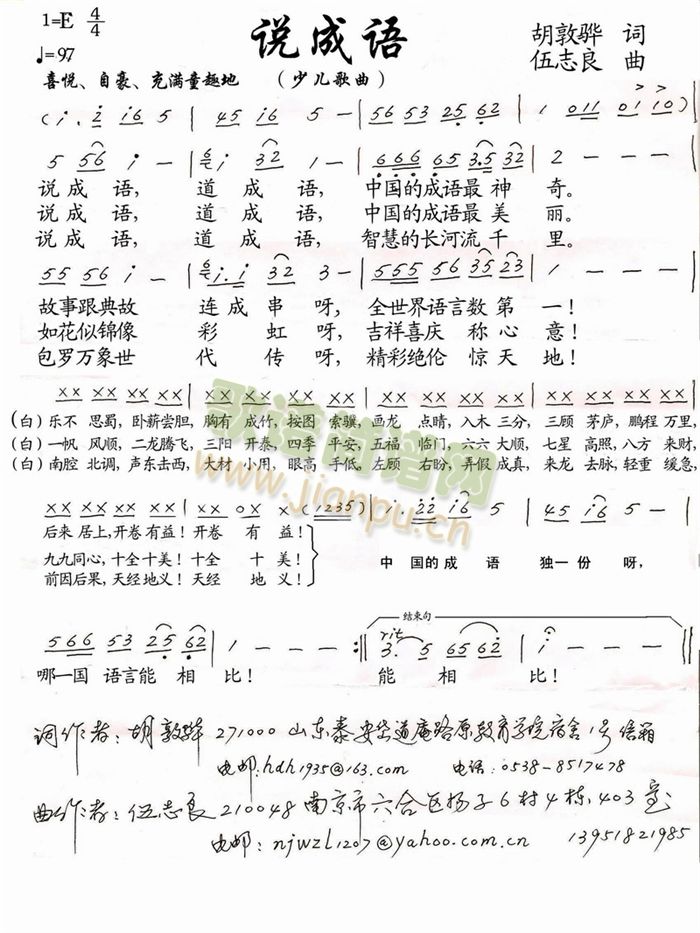 1=E 4/4
♩=97
说成语
胡敦骅 词
伍志良 曲
喜悦、自豪、充满童趣地 （少儿歌曲）
说 成 语， 道 成 语， 中国的成语最 神 奇。
说 成 语， 道 成 语， 中国的成语最 美 丽。
说 成 语， 道 成 语， 智慧的长河流 千 里。
故事跟典故 连 成 串 呀， 全世界语言数 第 一！
如花似锦像 彩 虹 呀， 吉祥喜庆 称 心 意！
包罗万象世 代 传 呀， 精彩绝伦 惊 天 地！
（白）乐不 思蜀，卧薪尝胆，胸有 成竹，按图 索骥，画龙 点睛，入木 三分，三顾 茅庐，鹏程 万里，
（白）一帆 风顺，二龙腾飞，三阳 开泰，四季 平安，五福 临门，六六 大顺，七星 高照，八方 来财，
（白）南腔 北调，声东击西，大材 小用，眼高 手低，左顾 右盼，弄假 成真，来龙 去脉，轻重 缓急，
后来 居上，开卷 有益！开卷 有 益！
九九同心，十全 十美！十全 十 美！
前因后果，天经 地义！天经 地 义！
中 国的 成 语 独一 份 呀，
结束句
rit
哪一国 语言能 相 比！ 能 相 比！
词作者：胡敦骅 271000 山东泰安岱道庵路原教育学院宿舍1号信箱
电邮：hdh1935@163.com 电话：0538-8517478
曲作者：伍志良 210048 南京市六合区扬子6村4栋，403室
电邮：njwzl1207@yahoo.com.cn 13951821985
歌谱简谱网
www.jianpu.cn